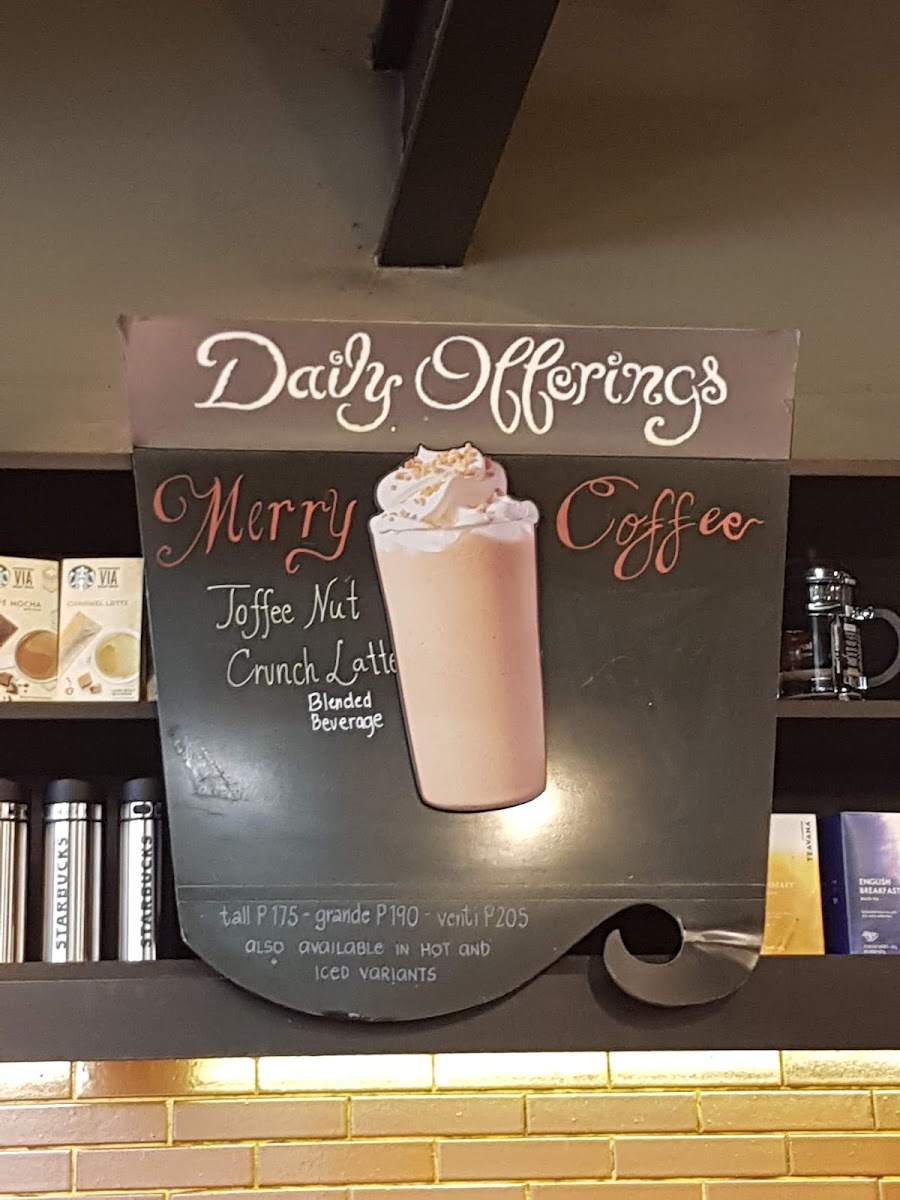 Daily Offerings
Merry Coffee
Toffee Nut
Crunch Latte
Blended
Beverage
tall P175 - grande P190 - venti P205
ALSO AVAILABLE IN HOT AND
ICED VARIANTS
VIA
MOCHA
VIA
CARAMEL LATTE
STARBUCKS
STARBUCKS
TEAVANA
ENGLISH
BREAKFAST